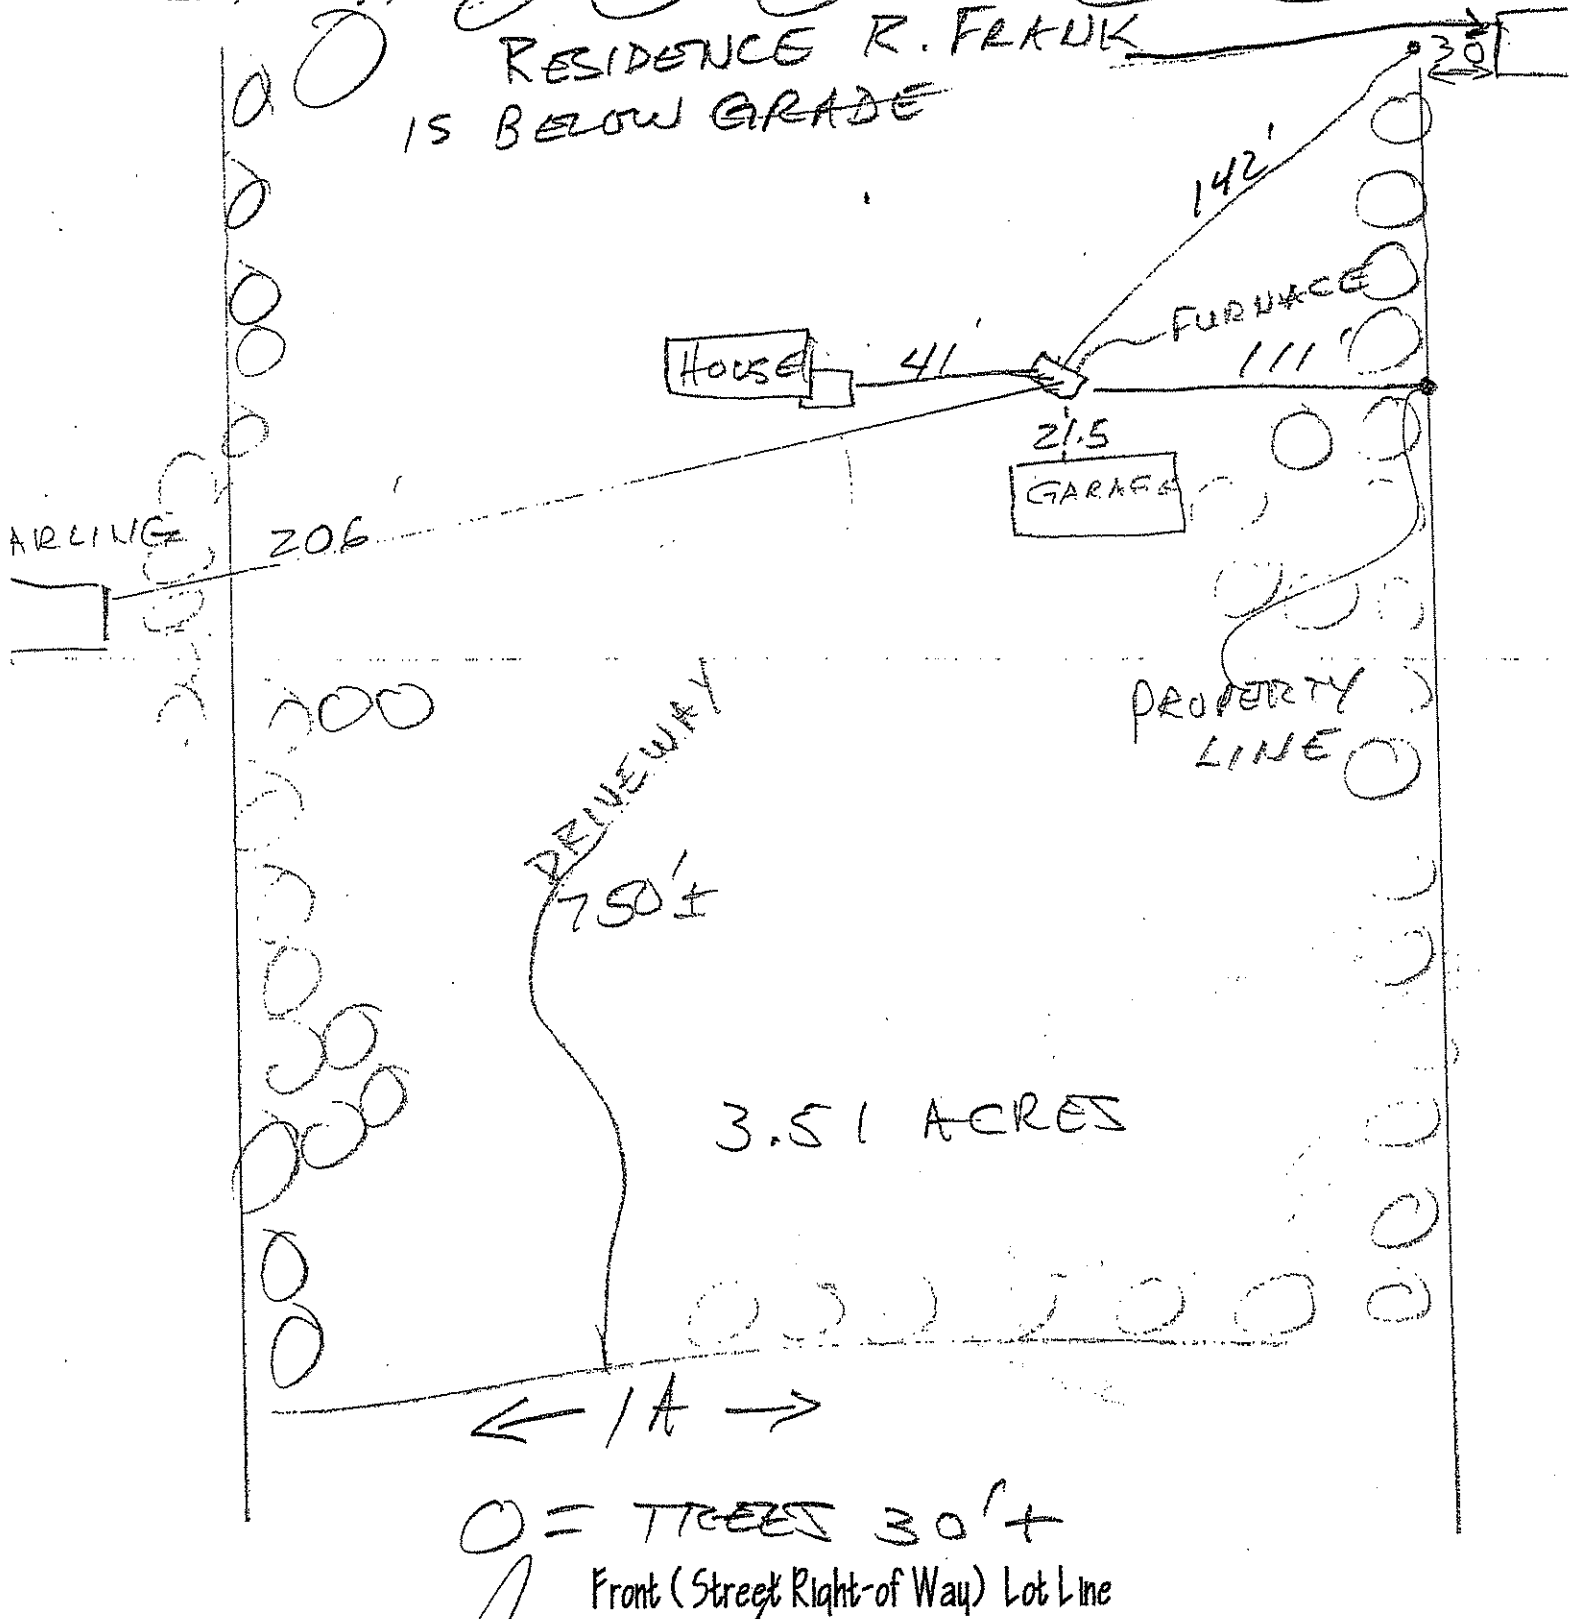 RESIDENCE R. FRANK
IS BELOW GRADE
30
142'
FURNACE
HOUSE
41'
111'
21.5
GARAGE
ARLING
206'
PROPERTY
LINE
DRIVEWAY
750'±
3.51 ACRES
← 1A →
O = TREES 30'+
Front (Street Right-of Way) Lot Line